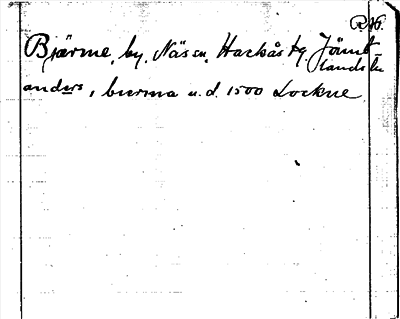 R.16.
Bjärme, by, Näs sn. Hackås tg. Jämt-
lands län
anders, biærma u.d. 1500 Lockne